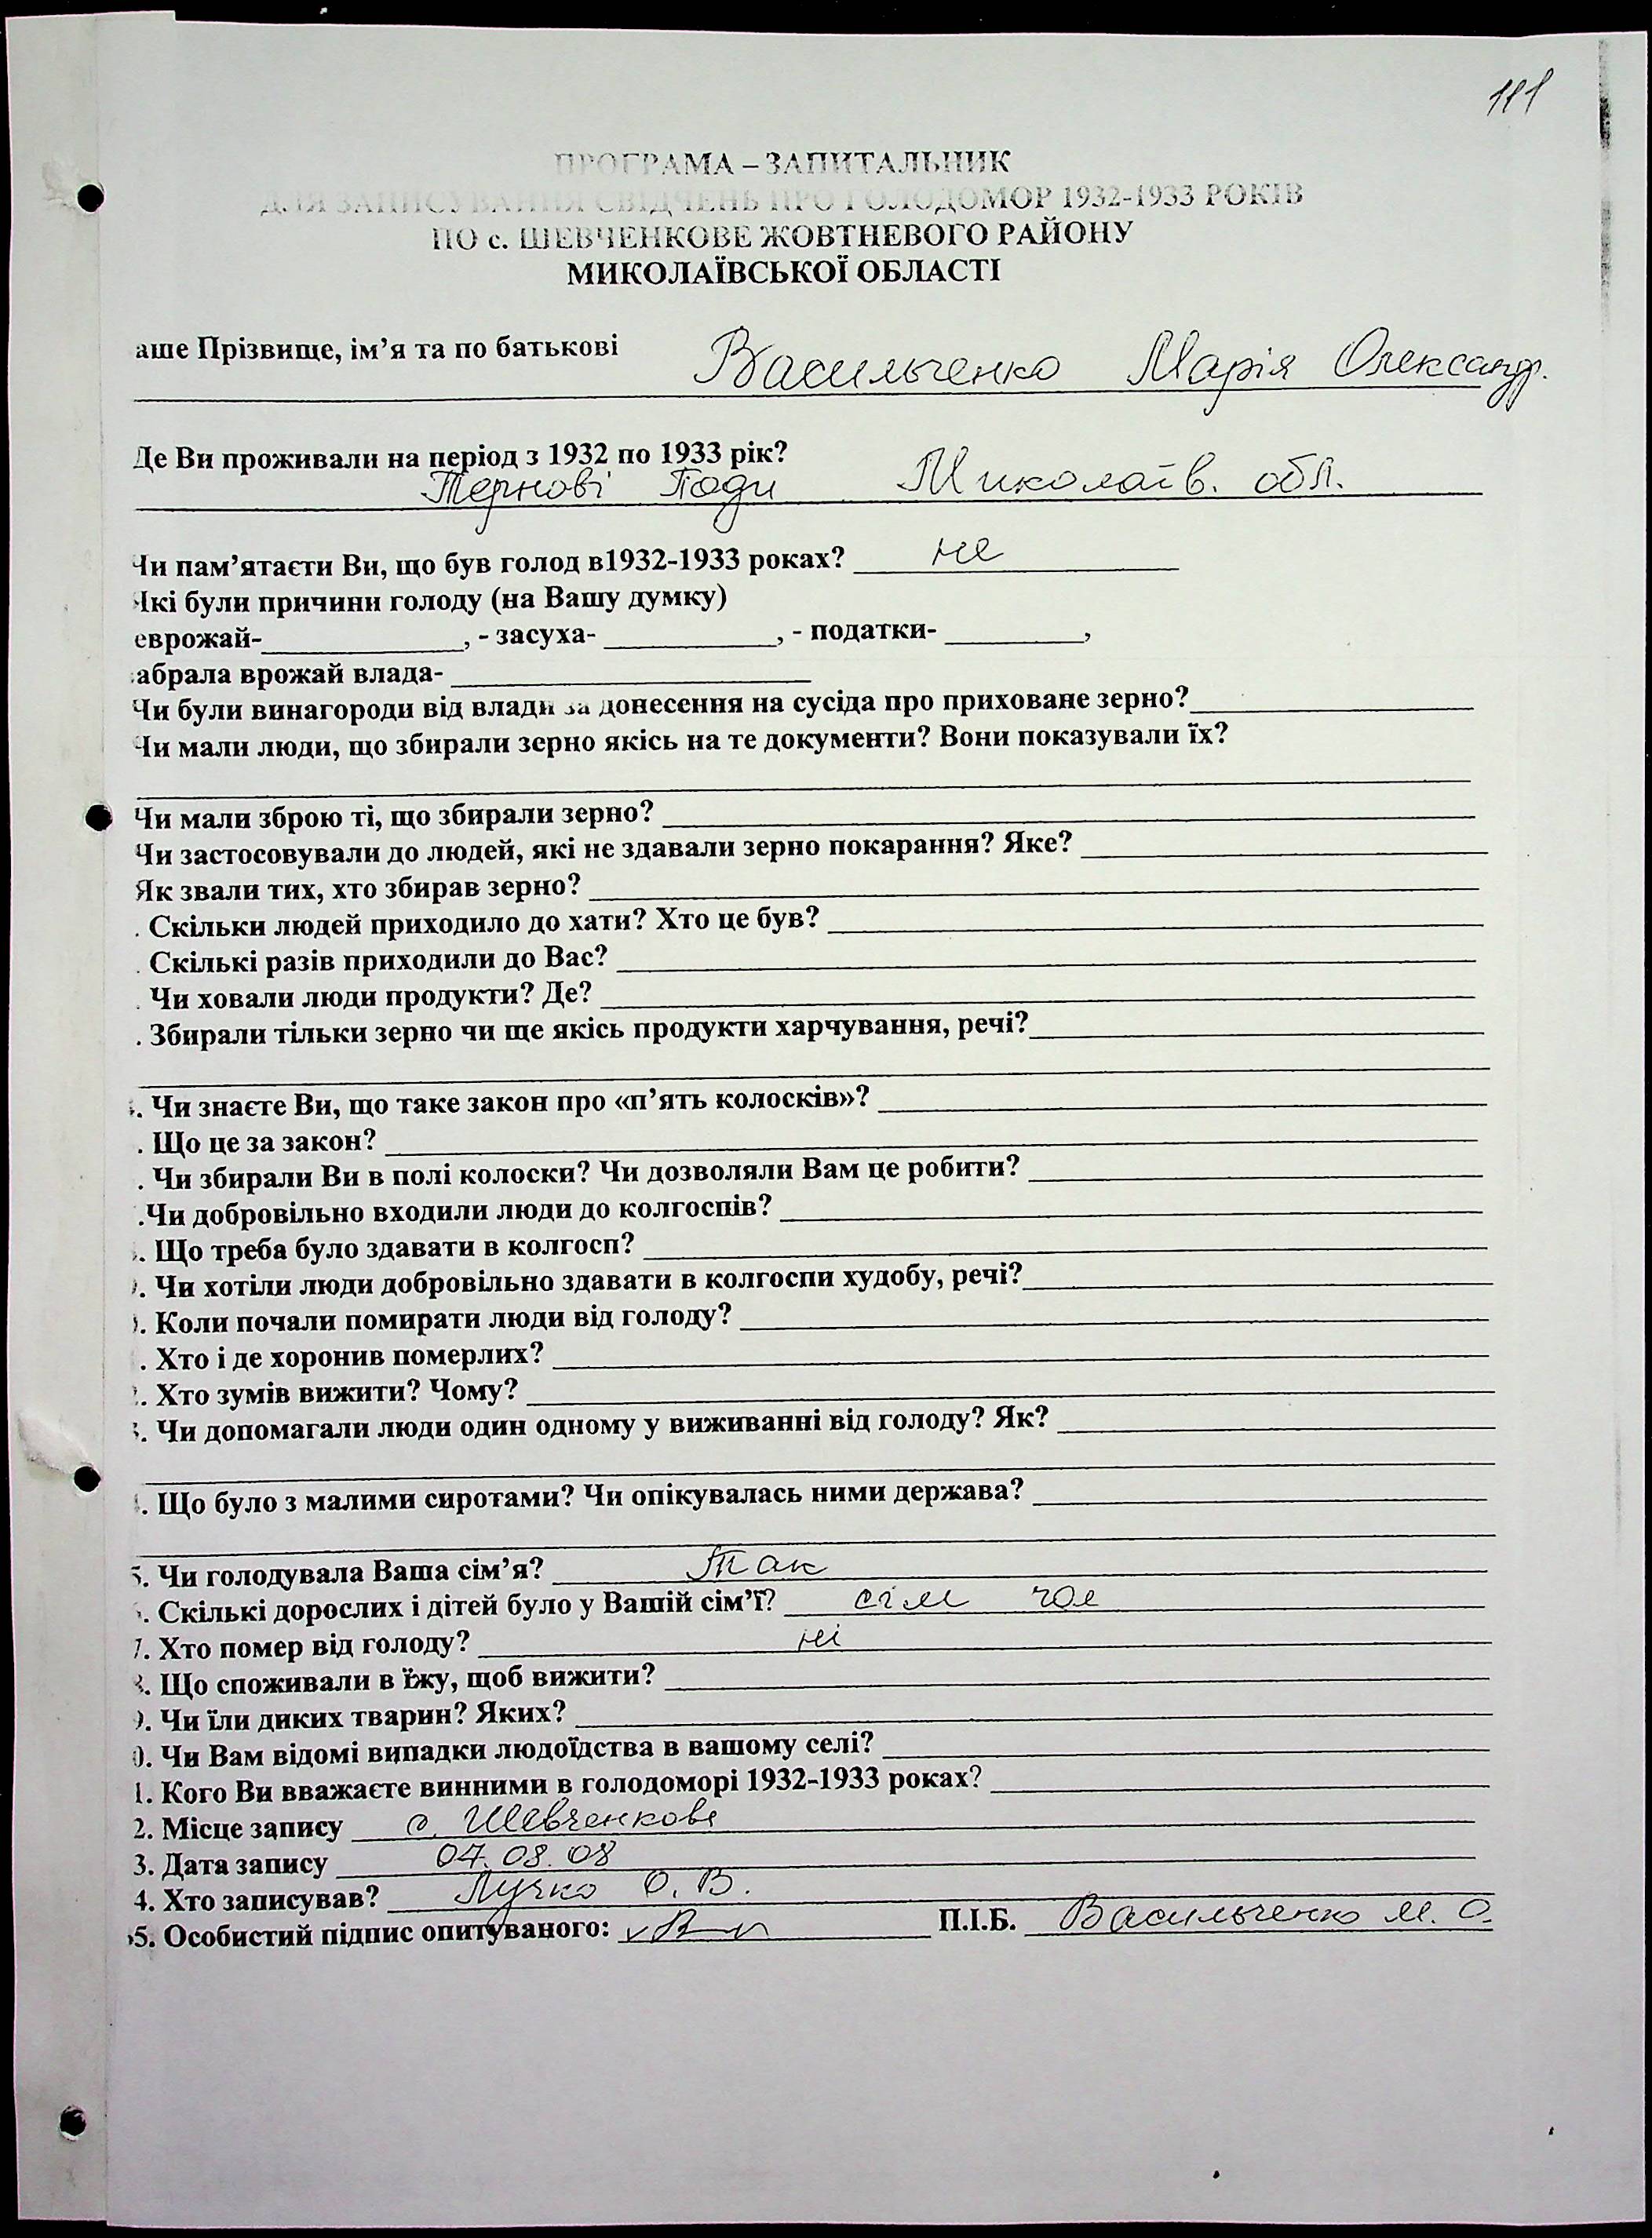 111
ПРОГРАМА – ЗАПИТАЛЬНИК
ДЛЯ ЗАПИСУВАННЯ СВІДЧЕНЬ ПРО ГОЛОДОМОР 1932-1933 РОКІВ
ПО с. ШЕВЧЕНКОВЕ ЖОВТНЕВОГО РАЙОНУ
МИКОЛАЇВСЬКОЇ ОБЛАСТІ
аше Прізвище, ім’я та по батькові Васильченко Марія Олександр.
Де Ви проживали на період з 1932 по 1933 рік?
Тернові Поди Миколаїв. обл.
Чи пам’ятаєти Ви, що був голод в1932-1933 роках? не
Які були причини голоду (на Вашу думку)
еврожай- , - засуха- , - податки- ,
абрала врожай влада-
Чи були винагороди від влади за донесення на сусіда про приховане зерно?
Чи мали люди, що збирали зерно якісь на те документи? Вони показували їх?
Чи мали зброю ті, що збирали зерно?
Чи застосовували до людей, які не здавали зерно покарання? Яке?
Як звали тих, хто збирав зерно?
. Скільки людей приходило до хати? Хто це був?
. Скількі разів приходили до Вас?
. Чи ховали люди продукти? Де?
. Збирали тільки зерно чи ще якісь продукти харчування, речі?
. Чи знаєте Ви, що таке закон про «п’ять колосків»?
. Що це за закон?
. Чи збирали Ви в полі колоски? Чи дозволяли Вам це робити?
.Чи добровільно входили люди до колгоспів?
. Що треба було здавати в колгосп?
. Чи хотіли люди добровільно здавати в колгоспи худобу, речі?
. Коли почали помирати люди від голоду?
. Хто і де хоронив померлих?
. Хто зумів вижити? Чому?
. Чи допомагали люди один одному у виживанні від голоду? Як?
. Що було з малими сиротами? Чи опікувалась ними держава?
5. Чи голодувала Ваша сім’я? Так
. Скількі дорослих і дітей було у Вашій сім’ї? сім чол
7. Хто помер від голоду? ні
. Що споживали в їжу, щоб вижити?
. Чи їли диких тварин? Яких?
0. Чи Вам відомі випадки людоїдства в вашому селі?
1. Кого Ви вважаєте винними в голодоморі 1932-1933 роках?
2. Місце запису с. Шевченкове
3. Дата запису 04.08.08
4. Хто записував? Лучко О. В.
5. Особистий підпис опитуваного: П.І.Б. Васильченко М. О.